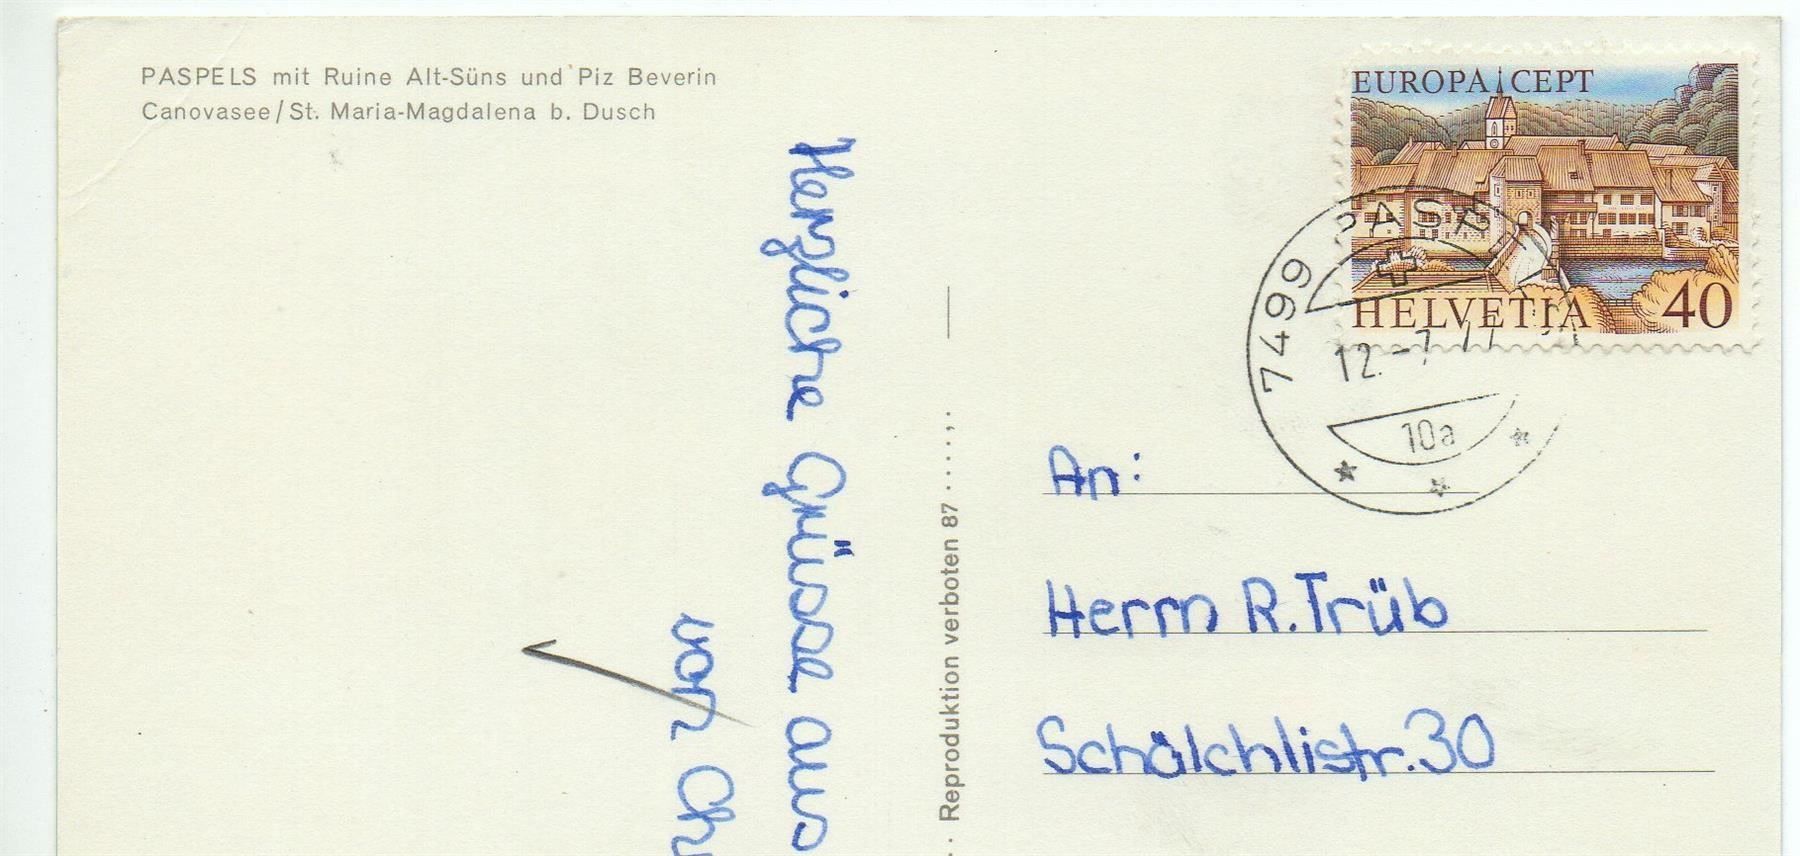 PASPELS mit Ruine Alt-Süns und Piz Beverin
Canovasee/St. Maria-Magdalena b. Dusch
Herzliche Grüsse aus
von
Reproduktion verboten 87
EUROPA CEPT
HELVETIA 40
7499
12.-7.77
10a
An:
Herrn R. Trüb
Schälchlistr. 30